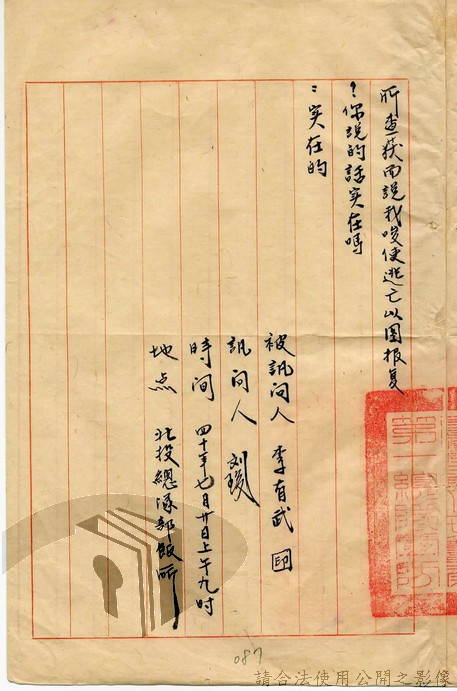 所查获而說我唆使逃亡以图报复
?你說的話实在嗎
:实在的
被訊问人 李有武 印
訊问人 刘
時间 四十年七月廿日上午九时
地点 北投總隊部飯所
087
請合法使用公開之影像